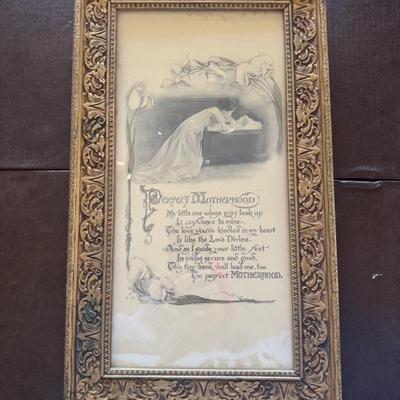 Perfect Motherhood
My little one whose eyes look up
In confidence to mine,
The love you've kindled in my heart
Is like the Love Divine.
And as I guide your little feet
In paths secure and good,
This tiny hand shall lead me, too,
To perfect MOTHERHOOD.